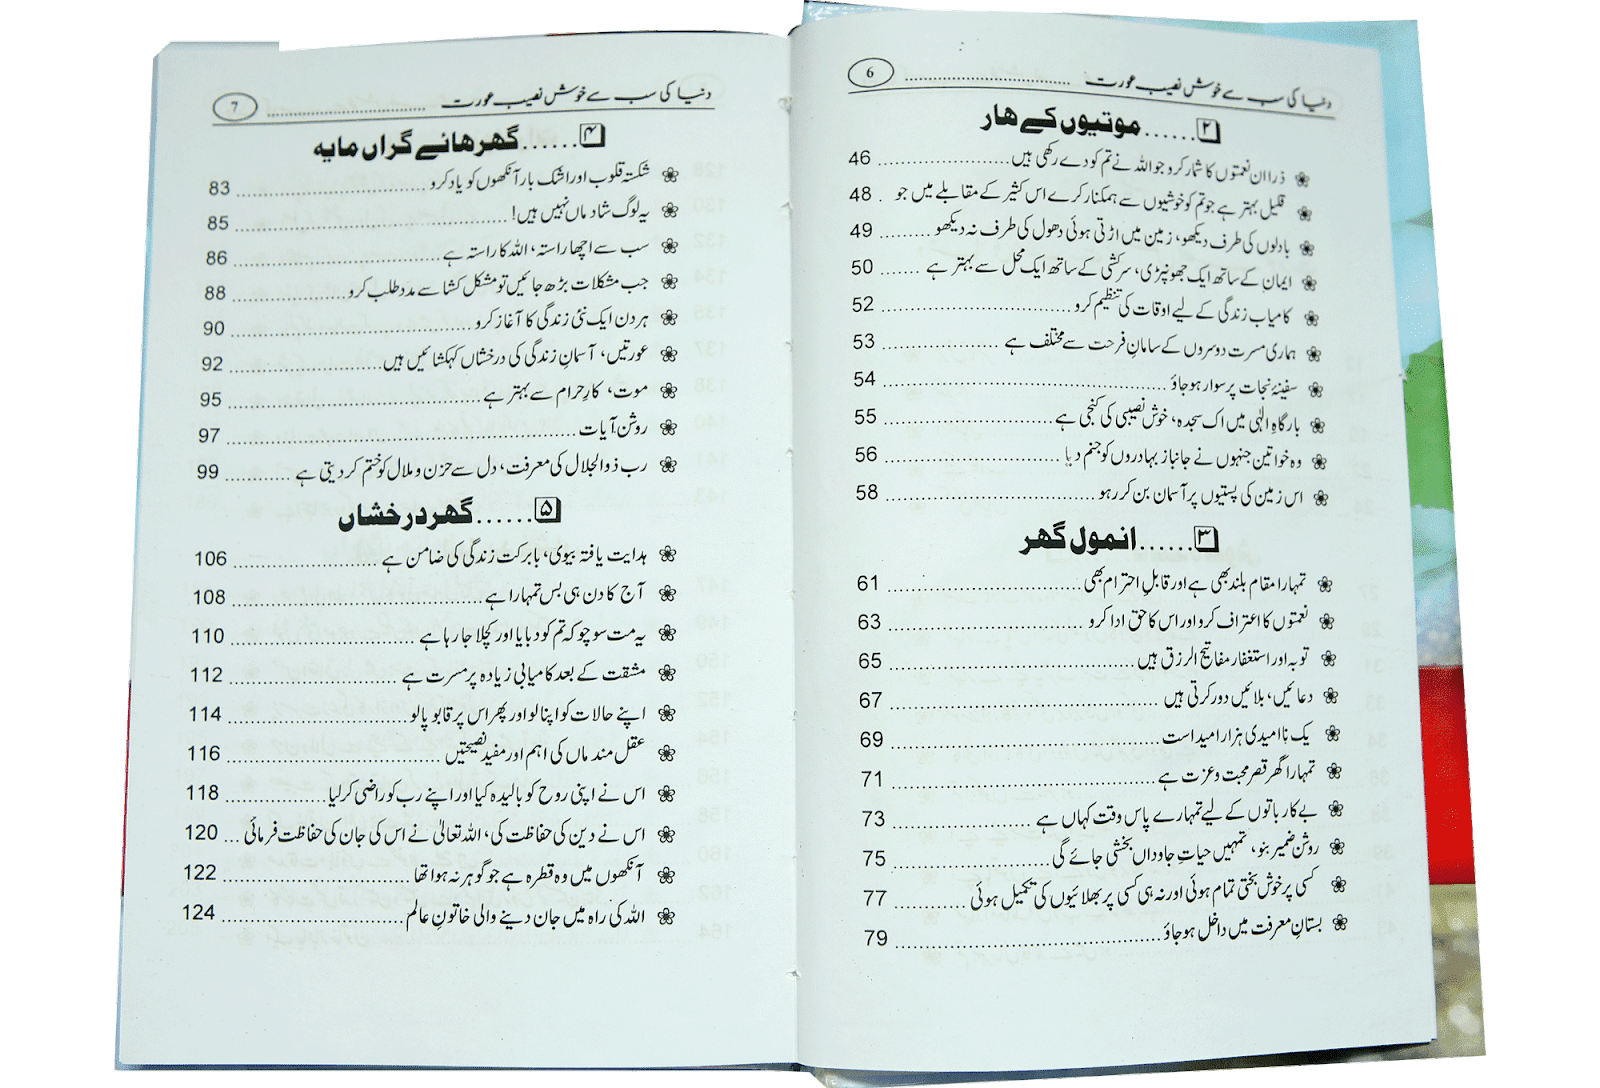 دنیا کی سب سے خوش نصیب عورت ........................................ 6
۲ ...... موتیوں کے ھار
❀ ذرا ان نعمتوں کا شمار کرو جو اللہ نے تم کو دے رکھی ہیں ........................ 46
❀ قلیل بہتر ہے جو تم کو خوشیوں سے ہمکنار کرے اس کثیر کے مقابلے میں جو . 48
❀ بادلوں کی طرف دیکھو، زمین میں اڑتی ہوئی دھول کی طرف نہ دیکھو ......... 49
❀ ایمان کے ساتھ ایک جھونپڑی، سرکشی کے ساتھ ایک محل سے بہتر ہے ....... 50
❀ کامیاب زندگی کے لیے اوقات کی تنظیم کرو .................................. 52
❀ ہماری مسرت دوسروں کے سامانِ فرحت سے مختلف ہے ..................... 53
❀ سفینۂ نجات پر سوار ہو جاؤ .................................................... 54
❀ بارگاہِ الٰہی میں اک سجدہ، خوش نصیبی کی کنجی ہے ............................ 55
❀ وہ خواتین جنہوں نے جانباز بہادروں کو جنم دیا ............................... 56
❀ اس زمین کی پستیوں پر آسمان بن کر رہو ..................................... 58
۳ ...... انمول گھر
❀ تمہارا مقام بلند بھی ہے اور قابلِ احترام بھی ................................... 61
❀ نعمتوں کا اعتراف کرو اور اس کا حق ادا کرو ................................... 63
❀ توبہ اور استغفار مفاتیح الرزق ہیں ............................................ 65
❀ دعائیں، بلائیں دور کرتی ہیں ................................................. 67
❀ یک ناامیدی ہزار امید است ................................................. 69
❀ تمہارا گھر قصرِ محبت و عزت ہے ............................................... 71
❀ بے کار باتوں کے لیے تمہارے پاس وقت کہاں ہے ......................... 73
❀ روشن ضمیر بنو، تمہیں حیاتِ جاوداں بخشی جائے گی ............................ 75
❀ کسی پر خوش بختی تمام ہوئی اور نہ ہی کسی پر بھلائیوں کی تکمیل ہوئی ............. 77
❀ بستانِ معرفت میں داخل ہو جاؤ .............................................. 79
دنیا کی سب سے خوش نصیب عورت ........................................ 7
۴ ...... گھر ھائے گراں مایہ
❀ شکستہ قلوب اور اشک بار آنکھوں کو یاد کرو .................................... 83
❀ یہ لوگ شادماں نہیں ہیں! .................................................... 85
❀ سب سے اچھا راستہ، اللہ کا راستہ ہے ........................................ 86
❀ جب مشکلات بڑھ جائیں تو مشکل کشا سے مدد طلب کرو .................... 88
❀ ہر دن ایک نئی زندگی کا آغاز کرو ............................................. 90
❀ عورتیں، آسمانِ زندگی کی درخشاں کہکشائیں ہیں .............................. 92
❀ موت، کارِ حرام سے بہتر ہے ................................................. 95
❀ روشن آیات ................................................................. 97
❀ رب ذوالجلال کی معرفت، دل سے حزن و ملال کو ختم کر دیتی ہے ............. 99
۵ ...... گھر درخشاں
❀ ہدایت یافتہ بیوی، بابرکت زندگی کی ضامن ہے ............................. 106
❀ آج کا دن ہی بس تمہارا ہے ................................................. 108
❀ یہ مت سوچو کہ تم کو دبایا اور کچلا جا رہا ہے .................................... 110
❀ مشقت کے بعد کامیابی زیادہ پر مسرت ہے ................................. 112
❀ اپنے حالات کو اپنا لو اور پھر اس پر قابو پا لو ................................... 114
❀ عقل مند ماں کی اہم اور مفید نصیحتیں ......................................... 116
❀ اس نے اپنی روح کو بالیدہ کیا اور اپنے رب کو راضی کر لیا ...................... 118
❀ اس نے دین کی حفاظت کی، اللہ تعالیٰ نے اس کی جان کی حفاظت فرمائی ... 120
❀ آنکھوں میں وہ قطرہ ہے جو گوہر نہ ہوا تھا ..................................... 122
❀ اللہ کی راہ میں جان دینے والی خاتونِ عالم ................................... 124